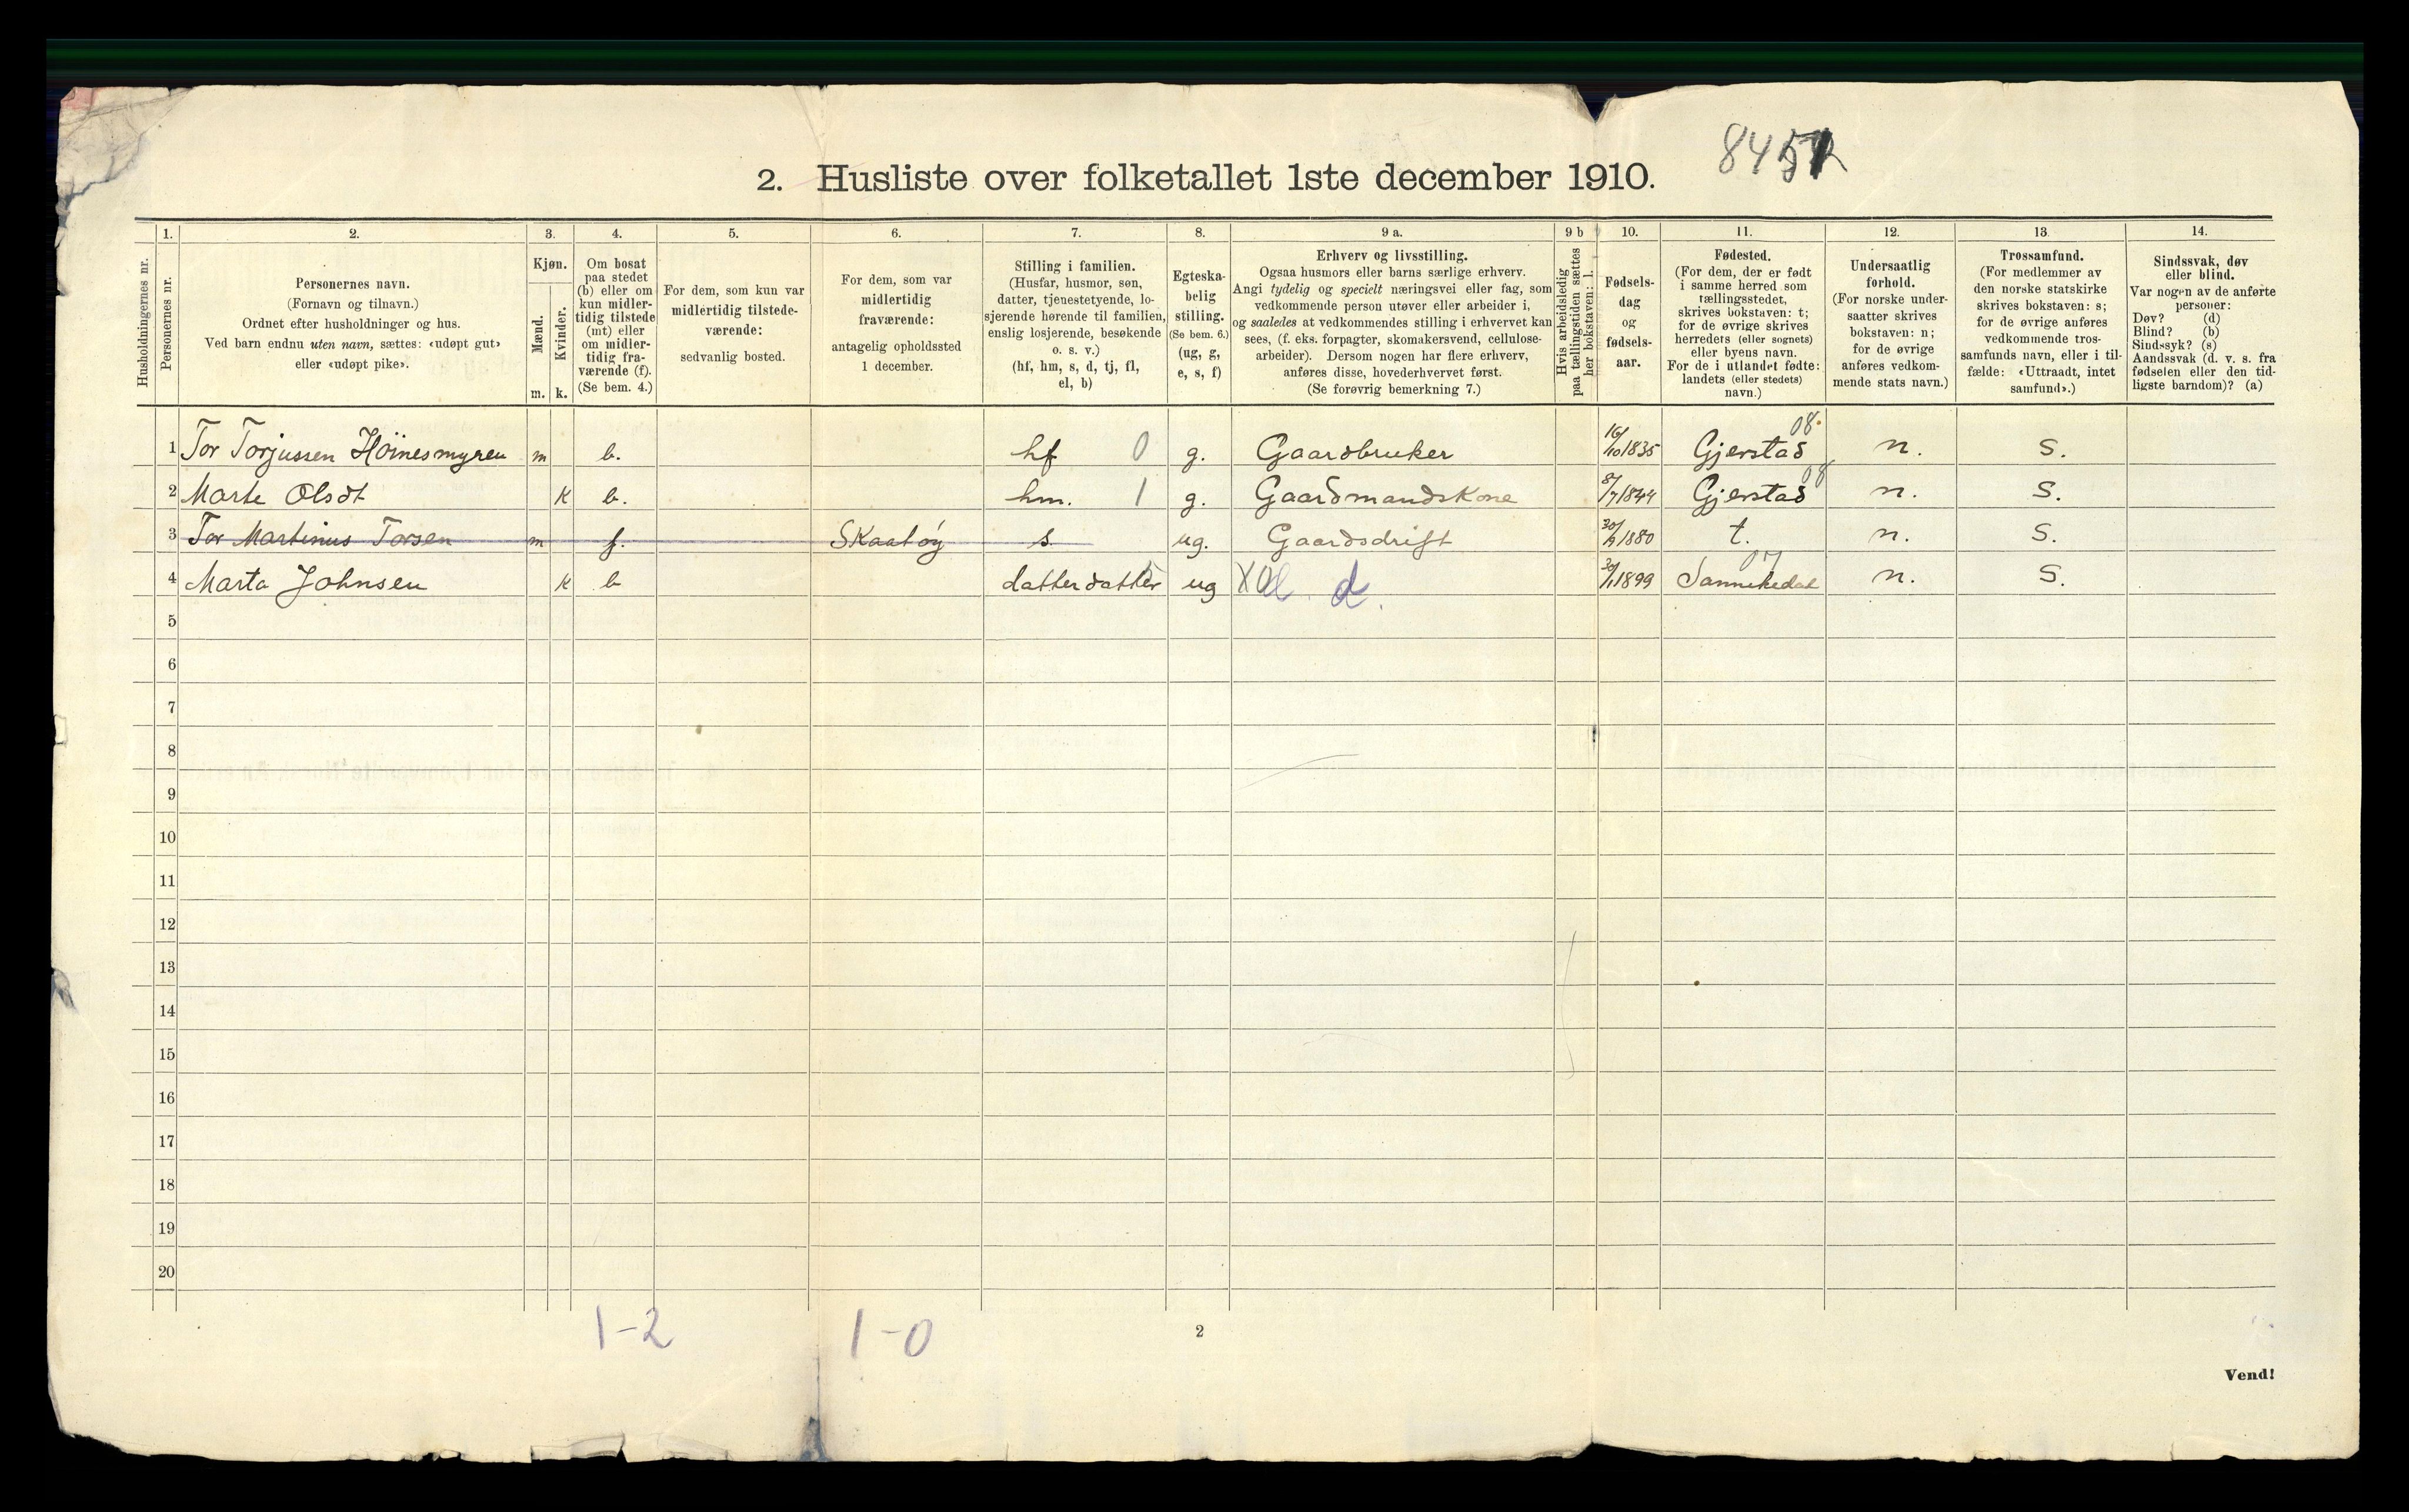 2. Husliste over folketallet 1ste december 1910.
1. 2. 3. 4. 5. 6. 7. 8. 9 a. 9 b 10. 11. 12. 13. 14.
Husholdningernes nr.
Personernes nr.
Personernes navn.
(Fornavn og tilnavn.)
Ordnet efter husholdninger og hus.
Ved barn endnu uten navn, sættes: «udøpt gut»
eller «udøpt pike».
Kjøn.
Mænd.
Kvinder.
m. k.
Om bosat
paa stedet
(b) eller om
kun midler-
tidig tilstede
(mt) eller
om midler-
tidig fra-
værende (f).
(Se bem. 4.)
For dem, som kun var
midlertidig tilstede-
værende:
sedvanlig bosted.
For dem, som var
midlertidig
fraværende:
antagelig opholdssted
1 december.
Stilling i familien.
(Husfar, husmor, søn,
datter, tjenestetyende, lo-
sjerende hørende til familien,
enslig losjerende, besøkende
o. s. v.)
(hf, hm, s, d, tj, fl,
el, b)
Egteska-
belig
stilling.
(Se bem. 6.)
(ug, g,
e, s, f)
Erhverv og livsstilling.
Ogsaa husmors eller barns særlige erhverv.
Angi tydelig og specielt næringsvei eller fag, som
vedkommende person utøver eller arbeider i,
og saaledes at vedkommendes stilling i erhvervet kan
sees, (f. eks. forpagter, skomakersvend, cellulose-
arbeider). Dersom nogen har flere erhverv,
anføres disse, hovederhvervet først.
(Se forøvrig bemerkning 7.)
Hvis arbeidsledig
paa tællingstiden sættes
her bokstaven: l.
Fødsels-
dag
og
fødsels-
aar.
Fødested.
(For dem, der er født
i samme herred som
tællingsstedet,
skrives bokstaven: t;
for de øvrige skrives
herredets (eller sognets)
eller byens navn.
For de i utlandet fødte:
landets (eller stedets)
navn.)
Undersaatlig
forhold.
(For norske under-
saatter skrives
bokstaven: n;
for de øvrige
anføres vedkom-
mende stats navn.)
Trossamfund.
(For medlemmer av
den norske statskirke
skrives bokstaven: s;
for de øvrige anføres
vedkommende tros-
samfunds navn, eller i til-
fælde: «Uttraadt, intet
samfund».)
Sindssvak, døv
eller blind.
Var nogen av de anførte
personer:
Døv? (d)
Blind? (b)
Sindssyk? (s)
Aandssvak (d. v. s. fra
fødselen eller den tid-
ligste barndom)? (a)
08.
1 Tor Torjussen Höinesmyren m b. hf 0 g. Gaardbruker 16/10 1835 Gjerstad n. s.
08
2 Marte Olsdt k b. hm. 1 g. Gaardmandskone 8/7 1844 Gjerstad n. s.
3 Tor Martinus Torsen m f. Skaatöy s. ug. Gaardsdrift 1880 t. n. s.
07
4 Marta Johnsen k b datterdatter ug d. 1899 Sannikedal n. s.
5
6
7
8
9
10
11
12
13
14
15
16
17
18
19
20
1-2 1-0
2
Vend!